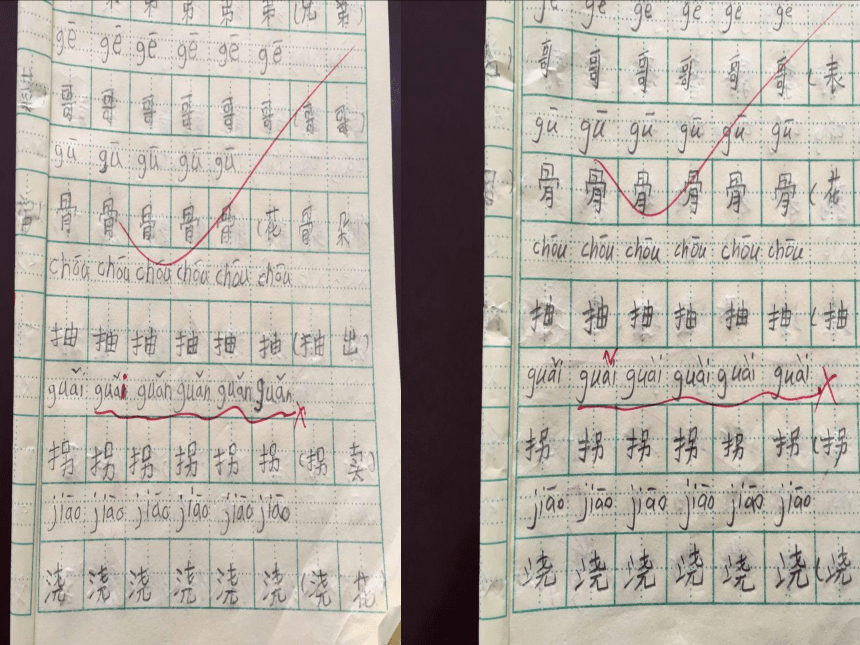 gē gē gē gē gē gē
哥 哥 哥 哥 哥 哥 (哥 哥)
gū gū gū gū gū
骨 骨 骨 骨 骨 (花 骨 朵
chōu chōu chōu chōu chōu chōu
抽 抽 抽 抽 抽 抽 (抽 出)
guǎi guǎi guǎn guǎn guǎn guǎn
拐 拐 拐 拐 拐 拐 (拐 卖)
jiāo jiāo jiāo jiāo jiāo jiāo
浇 浇 浇 浇 浇 浇 (浇 花
gē gē gē gē gē
哥 哥 哥 哥 哥 哥 (表
gū gū gū gū gū gū
骨 骨 骨 骨 骨 骨 (花
chōu chōu chōu chōu chōu chōu
抽 抽 抽 抽 抽 抽 (抽
guǎi guài guài guài guài guài
拐 拐 拐 拐 拐 拐 (拐
jiāo jiāo jiāo jiāo jiāo jiāo
浇 浇 浇 浇 浇 浇 (浇